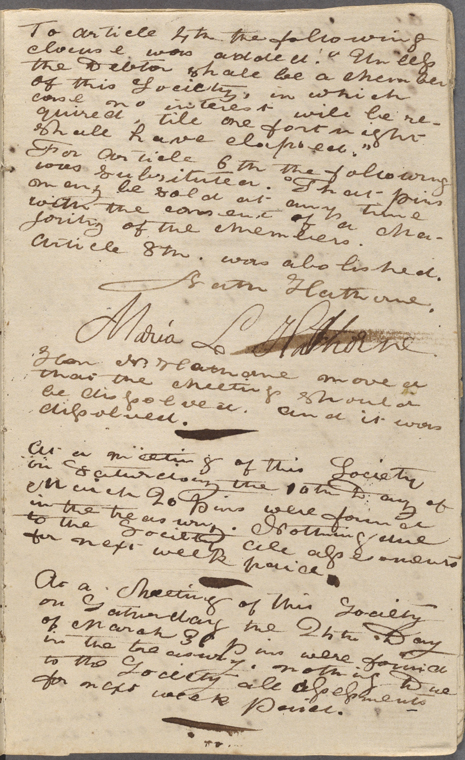 To article 4th the following
clause was added. "Unless
the Debtor shall be a member
of this Society, in which
case no interest will be re-
quired, till one fortnight
shall have elapsed."
For article 6th the following
was substituted. "That pins
may be sold at any time
with the consent of a Ma-
jority of the Members.
Article 8th. was abolished.
Nath Hathorne.
Maria L Hathorne
Hon N Hathorne moved
that the Meeting should
be dissolved. and it was
dissolved.
At a meeting of this Society
on Saturday the 10th Day of
March 20 Pins were found
in the treasury. Nothing due
to the Society all assesments
for next week paid.
At a Meeting of this Society
on Saturday the 24th Day
of March 36 Pins were found
in the treasury. nothing Due
to the Society all assessments
for next week Paid.